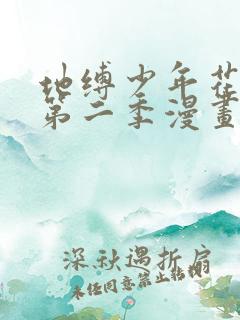 地缚少年花
第二季漫畫
深秋遇折扇
未经同意禁止转载